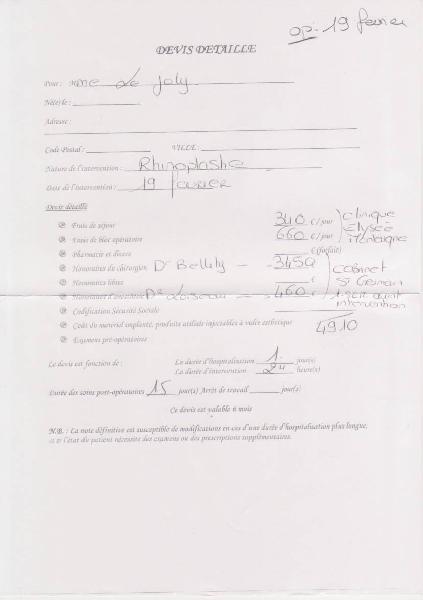 op. 19 février
DEVIS DETAILLE
Pour : Mme de Joly
Né(e) le :
Adresse :
Code Postal : VILLE :
Nature de l'intervention : Rhinoplastie
Date de l'intervention : 19 février
Devis détaillé
Frais de séjour 340 €/jour Clinique
Frais de bloc opératoire 660 €/jour Elysée Montaigne
Pharmacie et divers € (forfait)
Honoraires du chirurgien Dr - 3450 Cabinet
Honoraires libres € St Germain
Honoraires d'anesthésie Dr - 460 € avant intervention
Codification Sécurité Sociale
Coût du matériel implanté, produits utilisés injectables à visée esthétique 4910
Examens pré-opératoires
Le devis est fonction de : La durée d'hospitalisation 1 jour(s)
La durée d'intervention heure(s)
Durée des soins post-opératoires 15 jour(s) Arrêt de travail jour(s)
Ce devis est valable 6 mois
N.B. : La note définitive est susceptible de modifications en cas d'une durée d'hospitalisation plus longue,
si l'état du patient nécessite des examens ou des prescriptions supplémentaires.